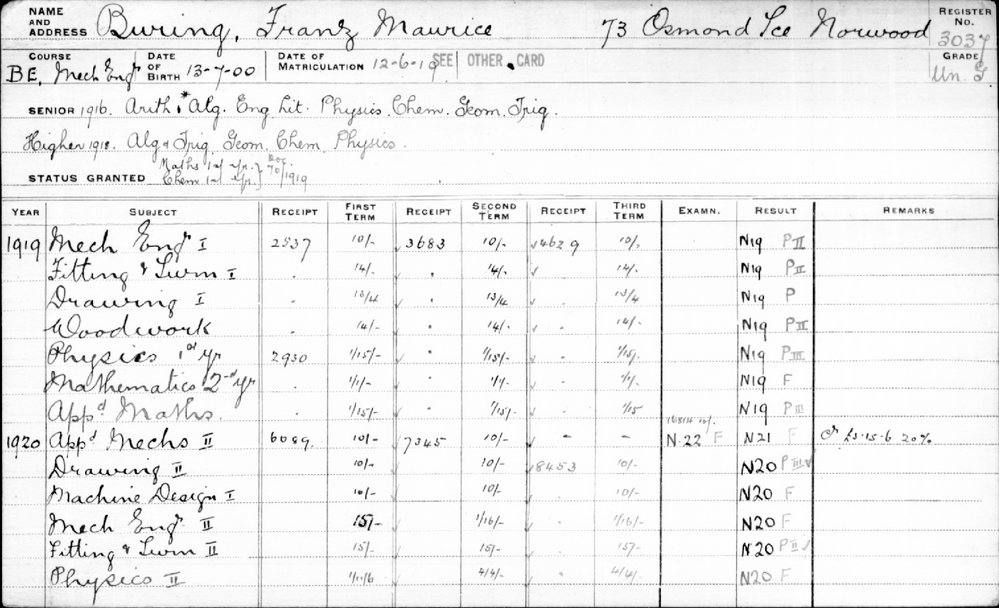 NAME AND ADDRESS Buring, Franz Maurice 73 Osmond Tce Norwood REGISTER No. 3037
COURSE BE, Mech Engr DATE OF BIRTH 13-7-00 DATE OF MATRICULATION 12-6-19 SEE OTHER CARD GRADE Un. G
SENIOR 1916. Arith, * Alg. Eng Lit. Physics. Chem. Geom. Trig.
Higher 1918. Alg & Trig. Geom. Chem. Physics.
STATUS GRANTED Maths 1st yr. } Rec.
Chem 1st yr. } 70/1919
YEAR SUBJECT RECEIPT FIRST TERM RECEIPT SECOND TERM RECEIPT THIRD TERM EXAMN. RESULT REMARKS
1919 Mech Engr I 2537 10/- 3683 10/- 4629 10/- N19 PII
Fitting & Turn I . 14/- . 14/- 14/- N19 PII
Drawing I . 13/4 . 13/4 13/4 N19 P
Woodwork . 14/- . 14/- 14/- N19 PII
Physics 1st yr 2930 1/15/- . 1/15/- 1/15/- N19 PIII
Mathematics 2nd yr . 1/1/- . 1/1/- 1/1/- N19 F
Appd Maths. . 1/15/- . 1/15/- 1/15 N19 PIII
1920 Appd Mechs II 6089. 10/- 7345 10/- - - N.22 F N21 F £5-15-6 20%
Drawing II 10/- 10/- 8453 10/- N20 PIII
Machine Design I 10/- 10/- 10/- N20 F
Mech Engr II 15/- 1/16/- 1/16/- N20 F
Fitting & Turn II 15/- 15/- 15/- N20 PII
Physics II 1/11/6 4/4/- 4/4/- N20 F